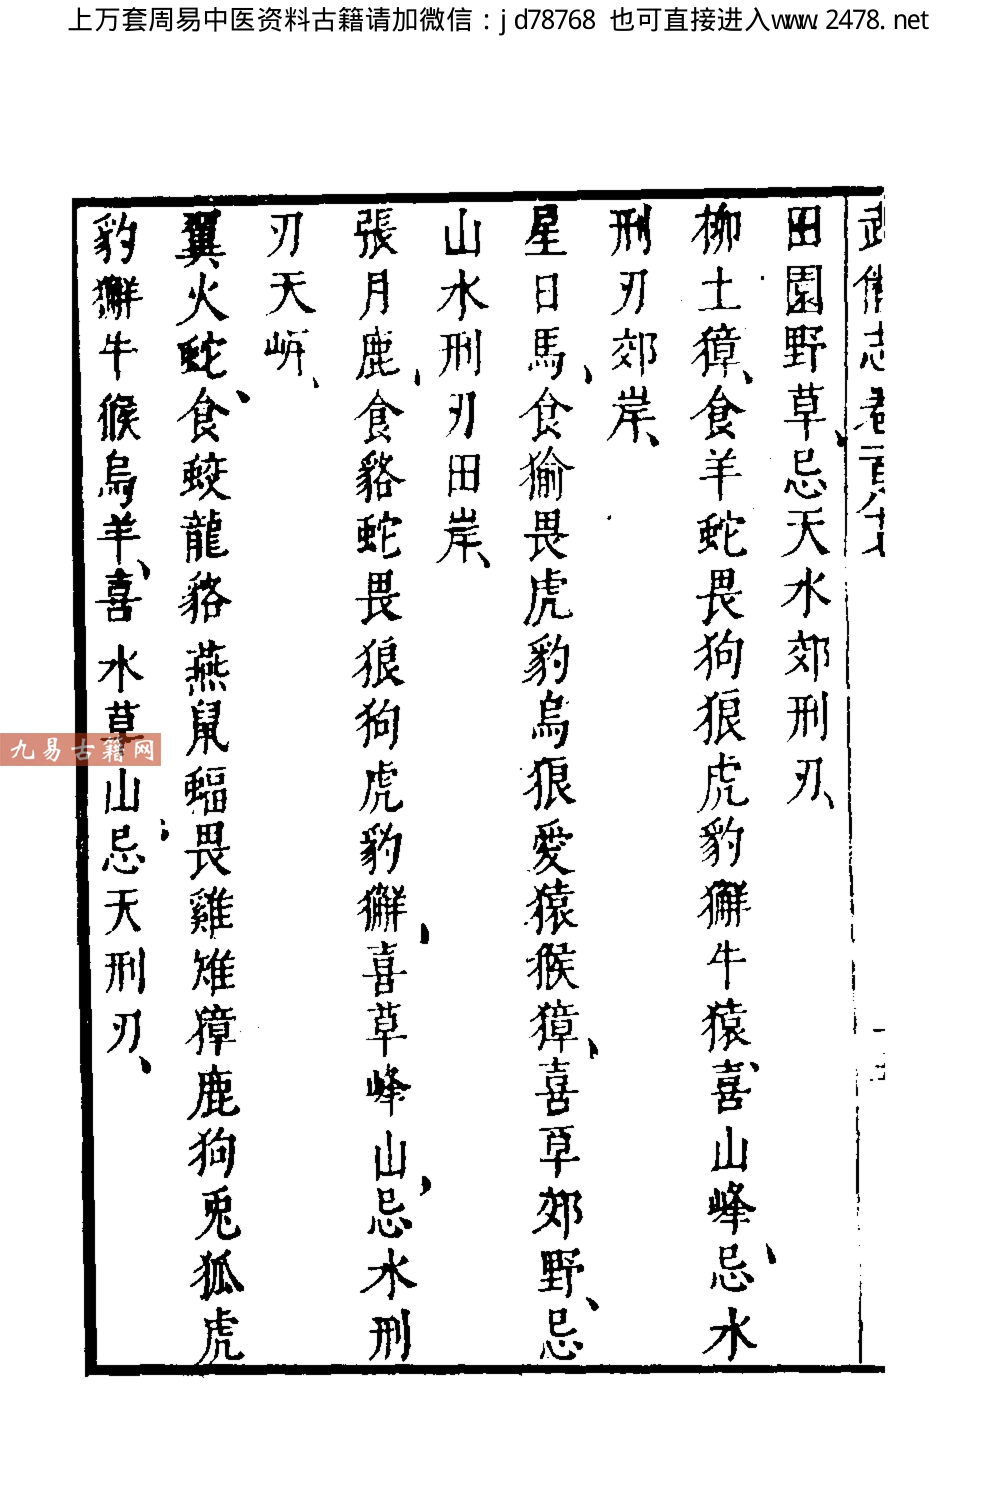 上万套周易中医资料古籍请加微信：jd78768 也可直接进入www.2478.net
武備志卷一百八十九
田園野草、忌天水郊刑刃、
柳土獐、食羊蛇畏狗狼虎豹獬牛猿喜、山峰忌、水
刑刃郊岸、
星日馬、食㺄畏虎豹烏狼愛猿猴獐、喜草郊野、忌
山水刑刃田岸、
張月鹿、食貉蛇畏狼狗虎豹獬、喜草峰山、忌水刑
刃天岍、
翼火蛇、食蛟龍貉燕鼠蝠畏雞雉獐鹿狗兎狐虎
豹獬牛猴烏羊、喜水草山、忌天刑刃、
九易古籍网